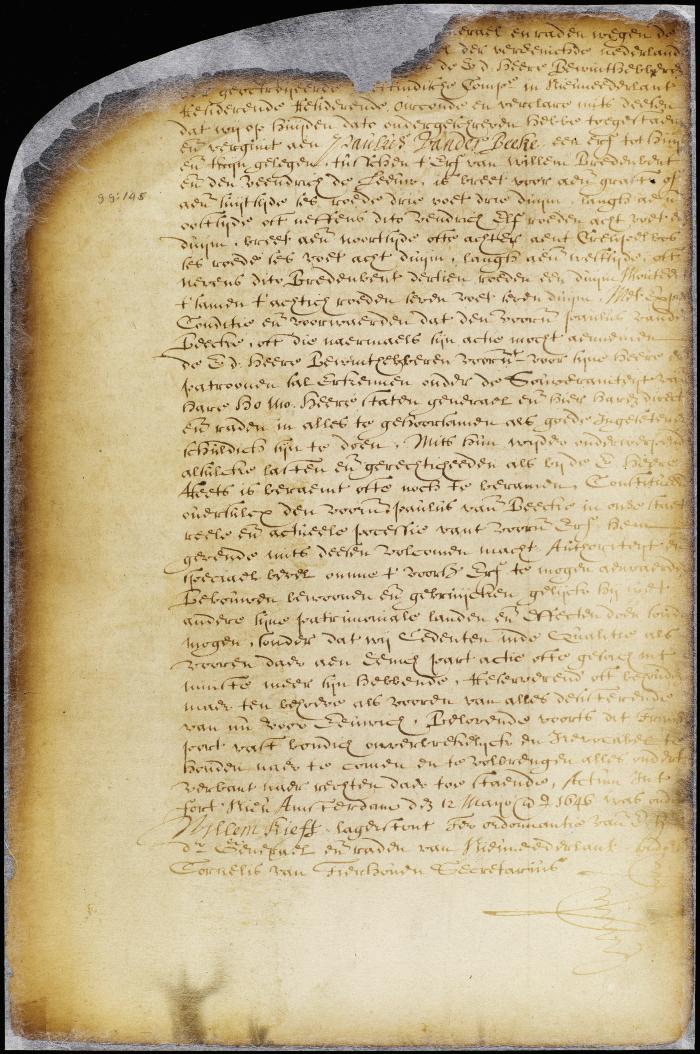 erael en raden wegen de
der vereenichde nederland
de E d. Heere Bewinthebberen
geoctroijeerde indische Compe in Nieuneederlant
Residerende Residerende, oirconde en verclare mits deesen
dat wij op huijden dato ondergeschreven hebbe toegestaen
en vergunt aen Paulus Vander Beeke een Erf tot huijs
en thuijn gelegen, tusschen t Erf van Willem Bredenbent
en den Veendrich de Leeuw, is breet voor aen gratt of
aen suijtsijde ses roede drie voet drie duijm, langh aen
oostsijde ofte neffens dito Vendrich Elf roeden acht voet
duijm, breet aen noortsijde ofte achter aent
ses roede ses voet acht duijm, langh aen westsijde, ofte
nevens dito Bredenbent dertien roeden een duijm Monteert
t'samen t'achtich roeden seven voet seven duijm, Met Expresse
Conditie en voorwaerden dat den voorn paulus vander
Beecke, oft die naermaels sijn actie mocht aennemen
de E d. Heere Bewinthebberen voornt voor sijne Heere en
patroonen sal Erkennen onder de Souverainiteyt van
hare Ho: Mo: Heere staten generael en hier haren direct
en raden in alles te gehoorsamen als goede Ingesetenen
schuldich sijn te doen, Mits hun wijders onderwerpende
alsulcke lasten en gerechticheeden als bij de E Heere
Reets is beraemt ofte noch te beramen, Constitueren
oversulcx den voorn paulus van Beecke in onse stact
reele en actueele possessie vant voorn Erf hem
gevende mits deesen volcomen macht Authoriteyt en
speciael bevel omme t voorsz Erf te mogen aenvaerden
Bebouwen bewoonen en gebruijcken gelijck hij met
andere sijne patrimoniale landen en Effecten doen soude
mogen, sonder dat wij Cedenten inde Qualitie als
vooren daer aen Eenich part actie ofte gesach int
minste meer sijn hebbende, Reserverend oft behoud
maer ten behoeve als vooren van alles desisterende
van nu voor Eeuwich, Belovende voorts dit Trans
port vast bondich onverbreckelijck en Irrevocabel te
houden naer te comen en te volbrengen alles ondert
verbant naer rechten daer toe staende, Actum Int
fort Nieu Amsterdam dez 12 Mayo A 1646 was onder
Willem Kieft, lager stont Ter ordonnantie van
dr Generael en raden van Nieuneederlant
Cornelis van Tienhoven Secretarius